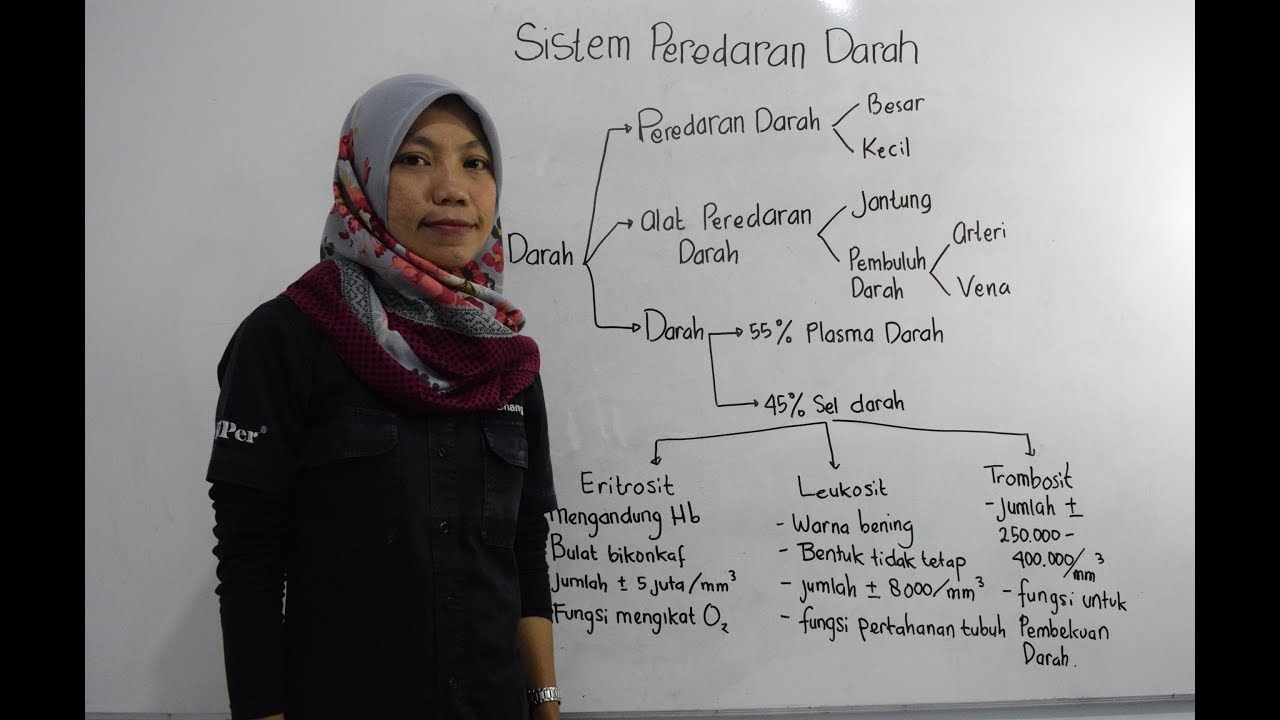 Sistem Peredaran Darah
Peredaran Darah
Besar
Kecil
Darah
alat Peredaran
Darah
Jantung
Pembuluh
Darah
arteri
Vena
Darah
55% Plasma Darah
45% Sel darah
Eritrosit
Mengandung Hb
Bulat bikonkaf
Jumlah ± 5 juta/mm³
Fungsi mengikat O₂
Leukosit
- Warna bening
- Bentuk tidak tetap
- jumlah ± 8000/mm³
- fungsi pertahanan tubuh
Trombosit
- Jumlah ±
250.000 -
400.000/mm³
- fungsi untuk
Pembekuan
Darah.